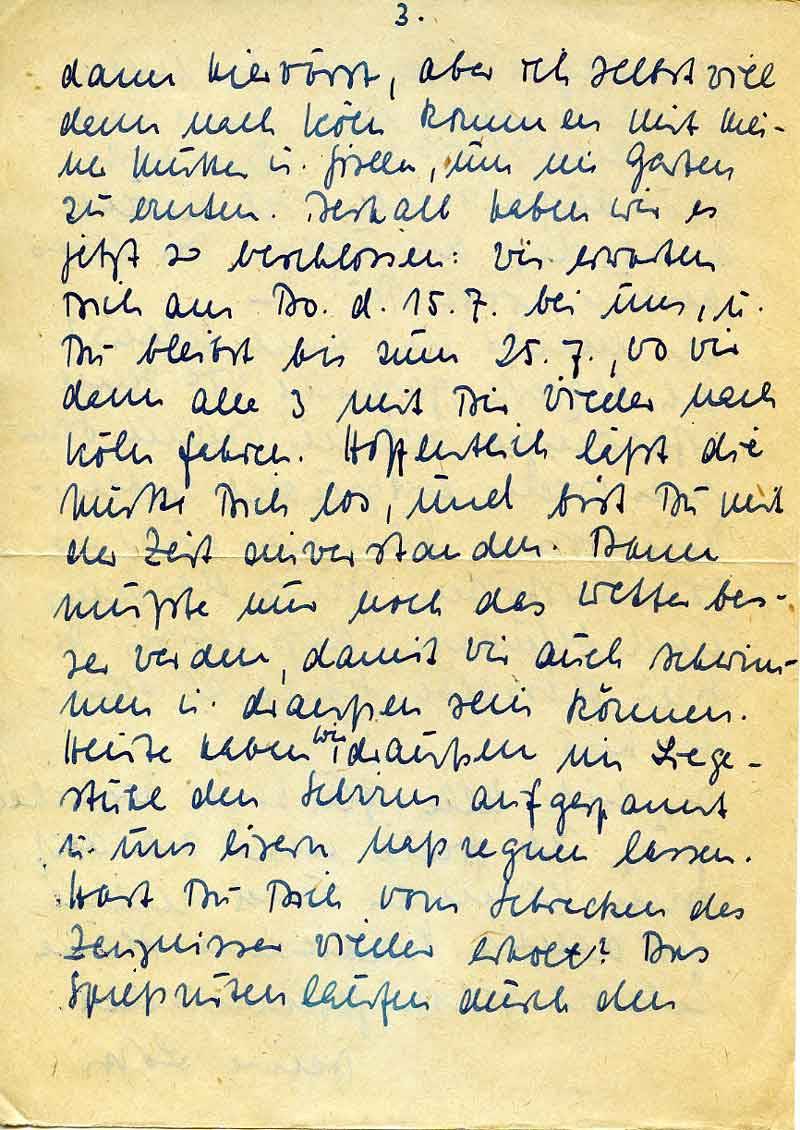 3.
dann hier wärst, aber ich selbst will
dann nach Köln kommen mit mei-
ner Mutter u. Gisela, um im Garten
zu ernten. Deshalb haben wir es
jetzt so beschlossen: Wir erwarten
Dich am Do. d. 15.7. bei uns, u.
Du bleibst bis zum 25.7., wo wir
dann alle 3 mit Dir wieder nach
Köln fahren. Hoffentlich läßt die
Mutti Dich los, und bist Du mit
der Zeit einverstanden. Dann
müßte nur noch das Wetter bes-
ser werden, damit wir auch schwim-
men u. draußen sein können.
Heute haben wir draußen im Liege-
stuhl den Schirm aufgespannt
u. uns eisern naßregnen lassen.
Hast Du Dich vom Schrecken des
Zeugnisses wieder erholt? Das
Spießrutenlaufen durch den